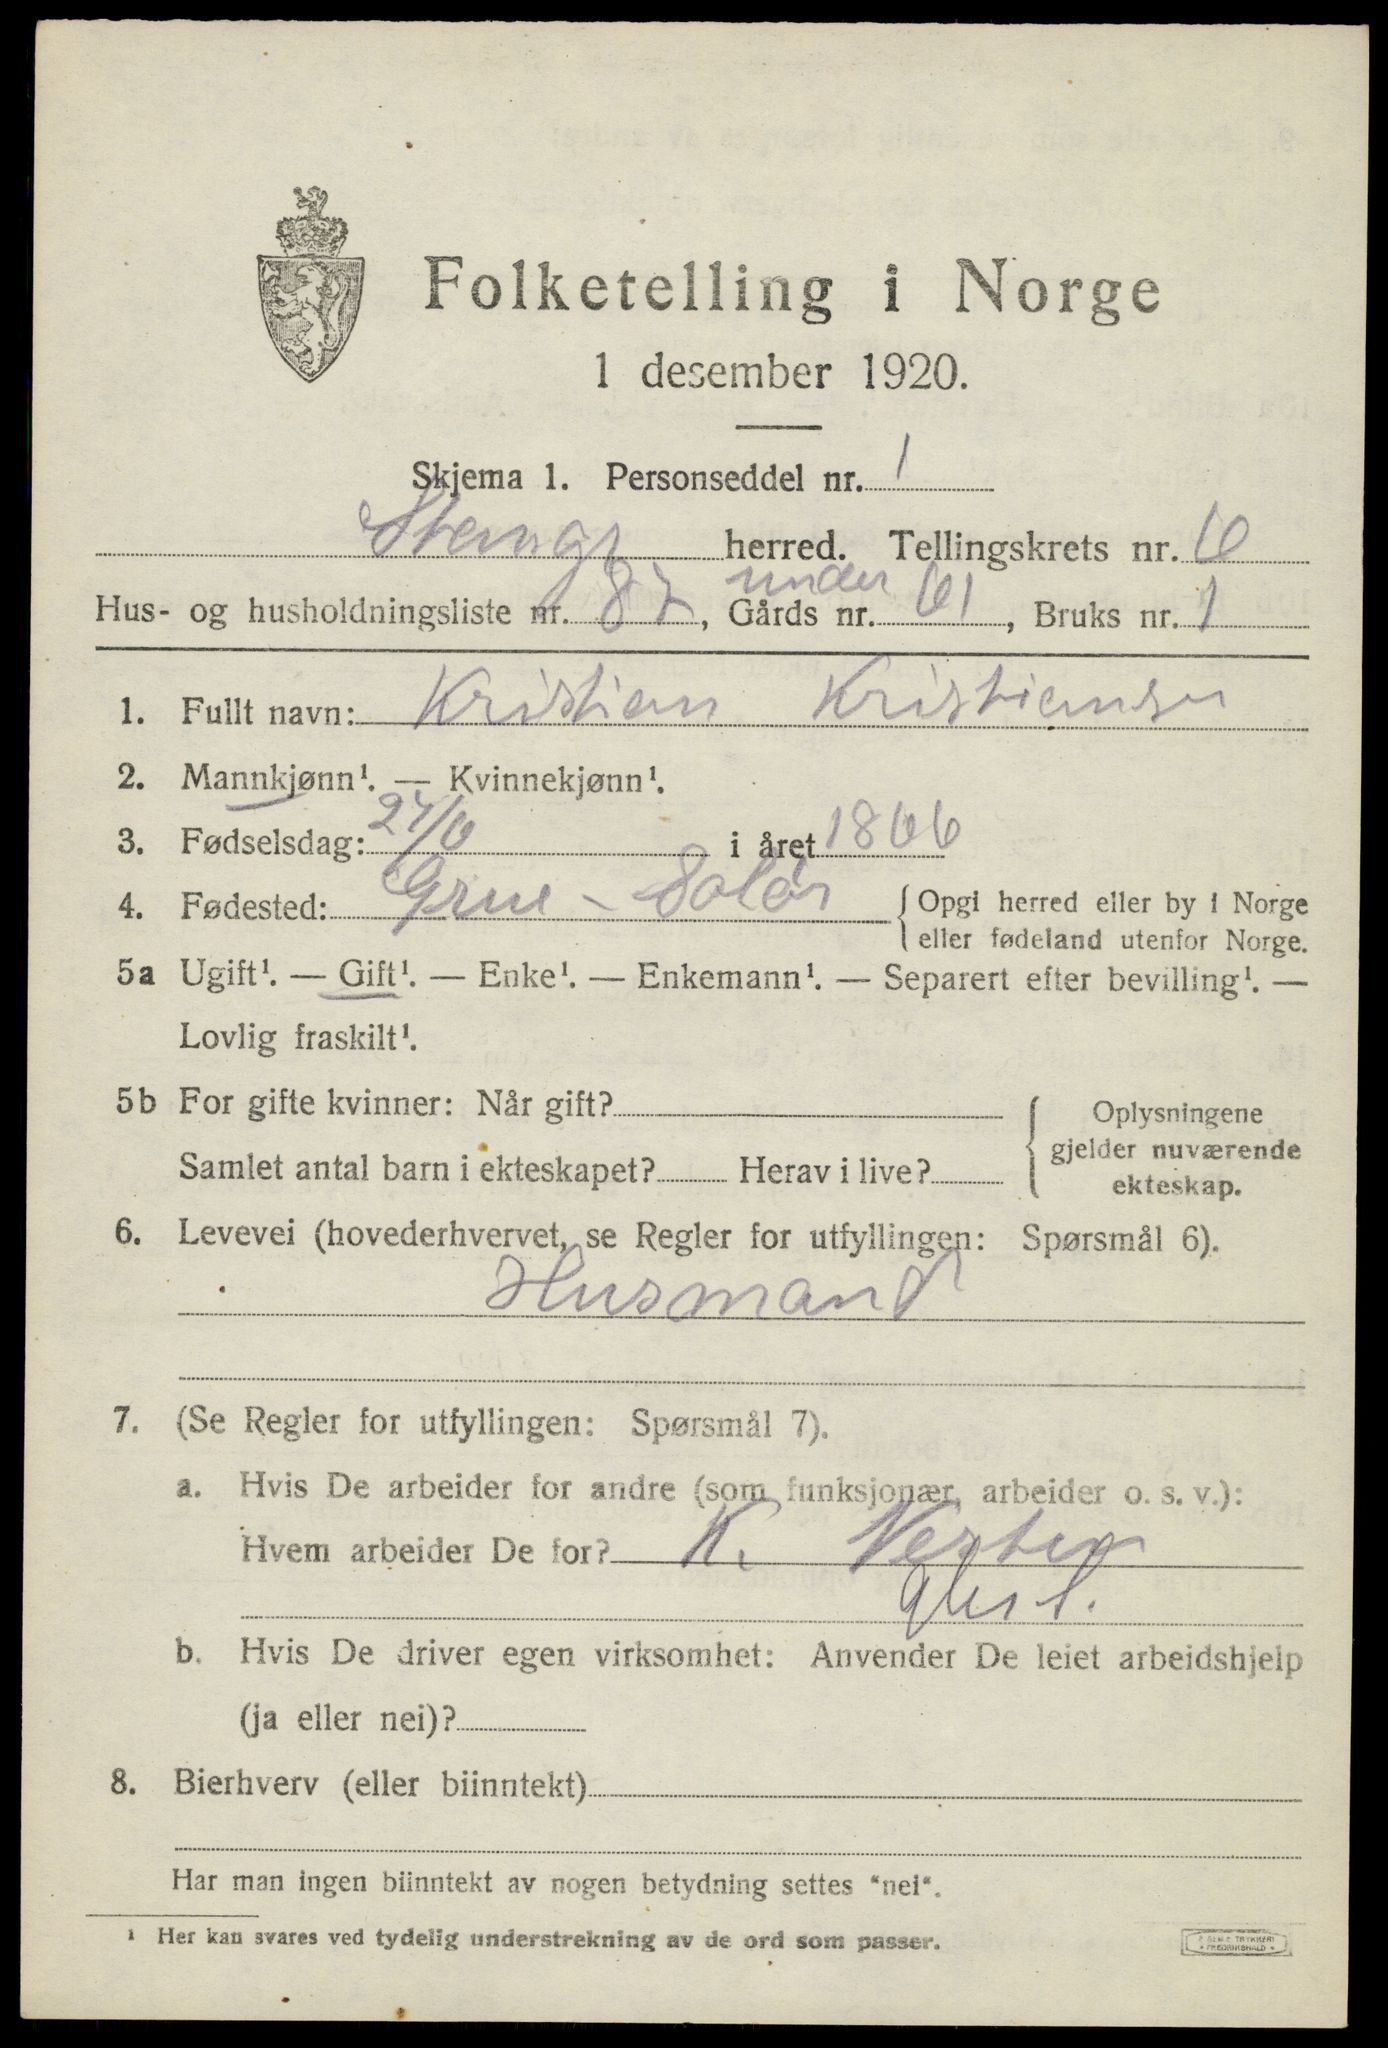 Folketelling i Norge
1 desember 1920.
Skjema 1. Personseddel nr. 1
Stange herred. Tellingskrets nr. 6
under
Hus- og husholdningsliste nr. 87, Gårds nr. 61, Bruks nr. 1
1. Fullt navn: Kristian Kristiansen
2. Mannkjønn¹. — Kvinnekjønn¹.
3. Fødselsdag: 27/6 i året 1866
4. Fødested: Grue - Solør { Opgi herred eller by i Norge
eller fødeland utenfor Norge.
5a Ugift¹. — Gift¹. — Enke¹. — Enkemann¹. — Separert efter bevilling¹. —
Lovlig fraskilt¹.
5b For gifte kvinner: Når gift?
Samlet antal barn i ekteskapet? Herav i live?
{ Oplysningene
gjelder nuværende
ekteskap.
6. Levevei (hovederhvervet, se Regler for utfyllingen: Spørsmål 6).
Husmand
7. (Se Regler for utfyllingen: Spørsmål 7).
a. Hvis De arbeider for andre (som funksjonær, arbeider o. s. v.):
Hvem arbeider De for? K. Vestby
b. Hvis De driver egen virksomhet: Anvender De leiet arbeidshjelp
(ja eller nei)?
8. Bierhverv (eller biinntekt)
Har man ingen biinntekt av nogen betydning settes "nei".
¹ Her kan svares ved tydelig understrekning av de ord som passer.